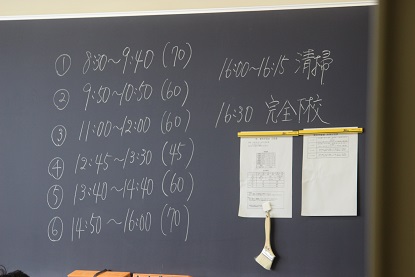 ① 8:30～9:40 (70)
② 9:50～10:50 (60)
③ 11:00～12:00 (60)
④ 12:45～13:30 (45)
⑤ 13:40～14:40 (60)
⑥ 14:50～16:00 (70)
16:00～16:15 清掃
16:30 完全下校